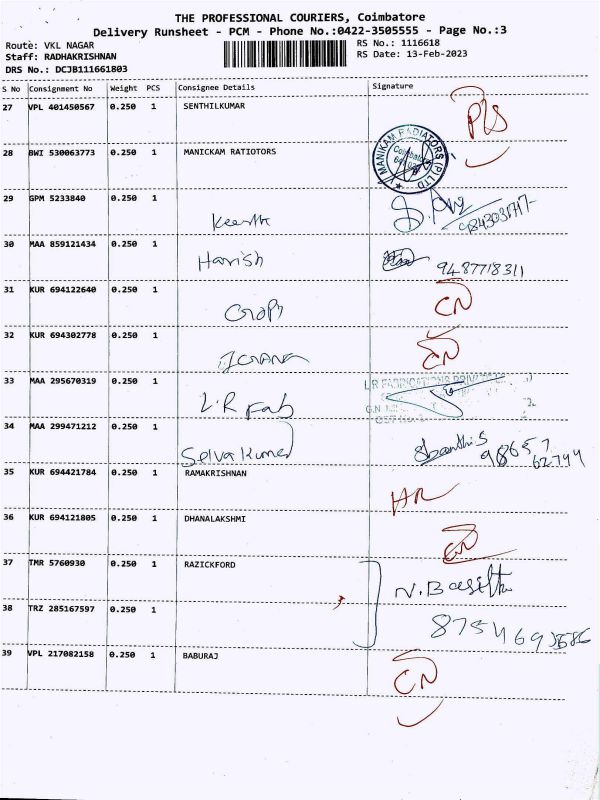 THE PROFESSIONAL COURIERS, Coimbatore
Delivery Runsheet - PCM - Phone No.:0422-3505555 - Page No.:3
Route: VKL NAGAR RS No.: 1116618
Staff: RADHAKRISHNAN RS Date: 13-Feb-2023
DRS No.: DCJB111661803
S No Consignment No Weight PCS Consignee Details Signature
27 VPL 401450567 0.250 1 SENTHILKUMAR
28 BWI 530063773 0.250 1 MANICKAM RATIOTORS
MANIKAM RADIATORS (P) LTD
29 GPM 5233840 0.250 1
30 MAA 859121434 0.250 1 Harish 9487718311
31 KUR 694122640 0.250 1 Gopi CN
32 KUR 694302778 0.250 1 CN
33 MAA 295670319 0.250 1 L.R Fab
34 MAA 299471212 0.250 1 Selva Kumar Shanthi S 98657 62744
35 KUR 694421784 0.250 1 RAMAKRISHNAN
36 KUR 694121805 0.250 1 DHANALAKSHMI CN
37 TMR 5760930 0.250 1 RAZICKFORD
38 TRZ 285167597 0.250 1
39 VPL 217082158 0.250 1 BABURAJ CN